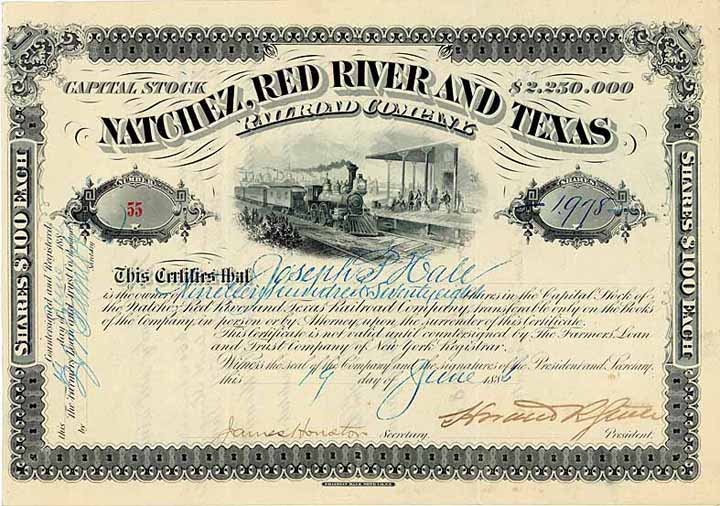 CAPITAL STOCK $2.250.000
NATCHEZ, RED RIVER AND TEXAS
RAILROAD COMPANY.
NUMBER
55
SHARES
1978
SHARES $100 EACH
SHARES $100 EACH
This Certifies that Joseph P. Hale
is the owner of Nineteen Hundred & Seventy eight shares in the Capital Stock of
the Natchez, Red River and Texas Railroad Company, transferable only on the books
of the Company, in person or by Attorney, upon the surrender of this Certificate.
This Certificate is not valid until countersigned by The Farmers' Loan
and Trust Company of New York, Registrar.
Witness the seal of the Company and the signatures of the President and Secretary,
this 19 day of June 188
James Houston Secretary.
President.
Countersigned and Registered,
this day of 188
The Farmers' Loan and Trust Company
by